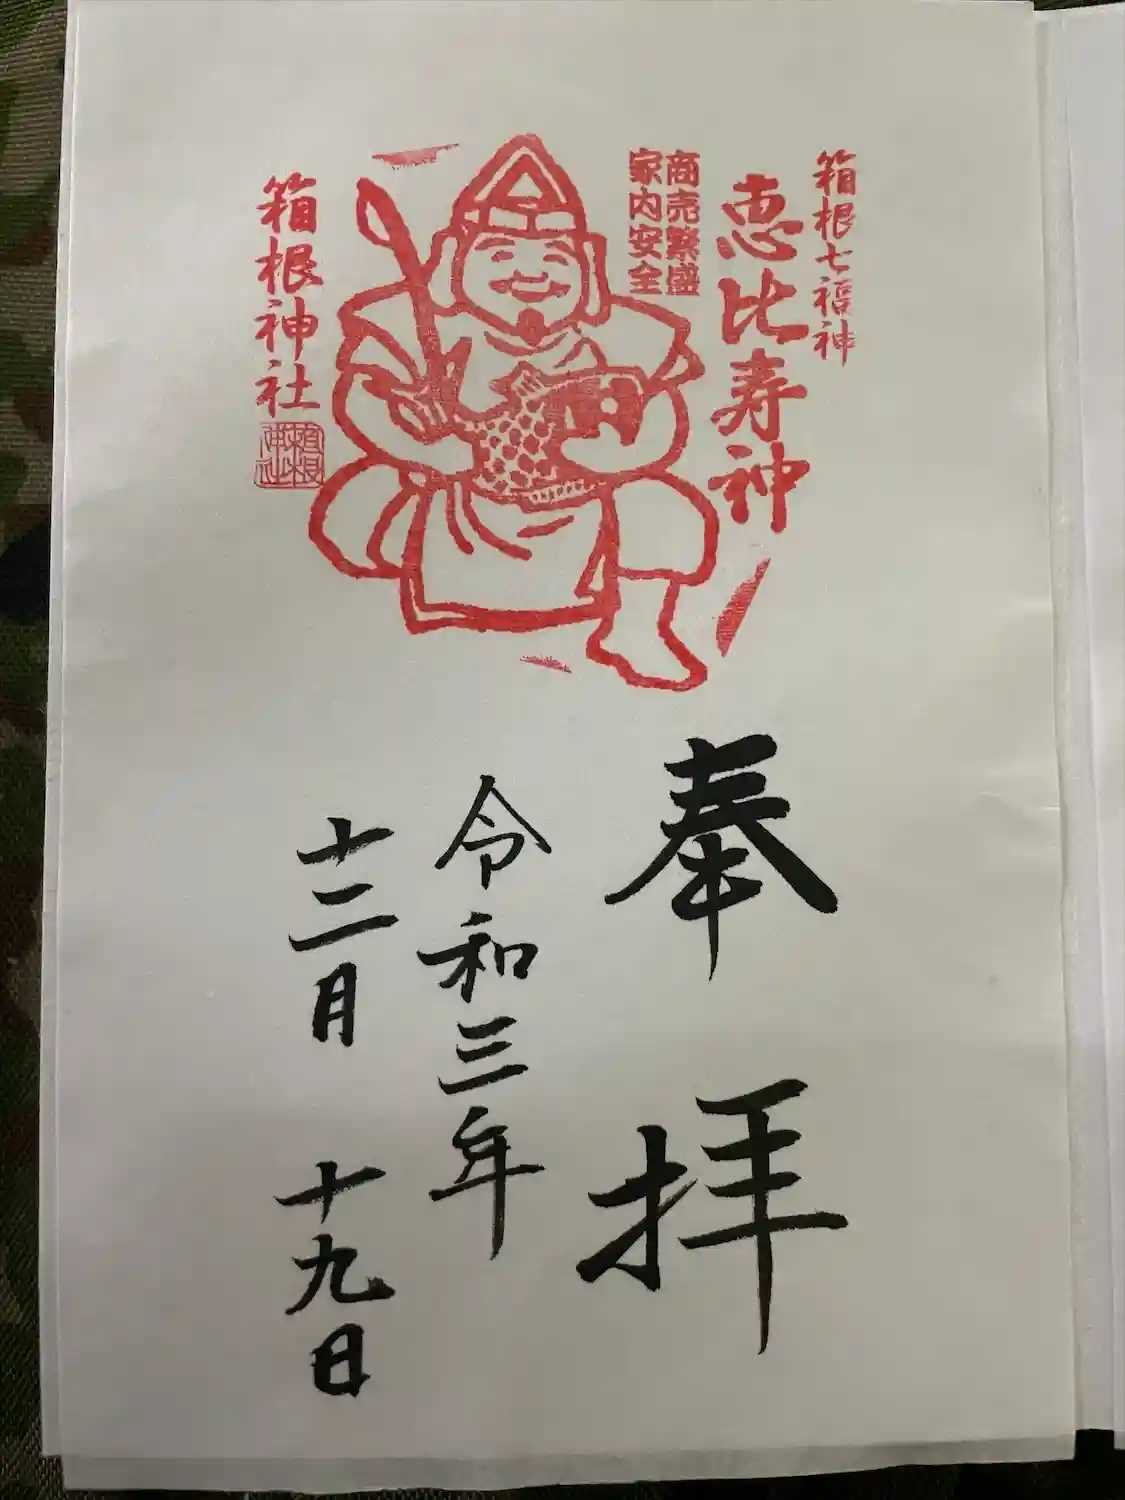 箱根七福神
恵比寿神
商売繁盛
家内安全
箱根神社
奉拝
令和三年
十二月十九日